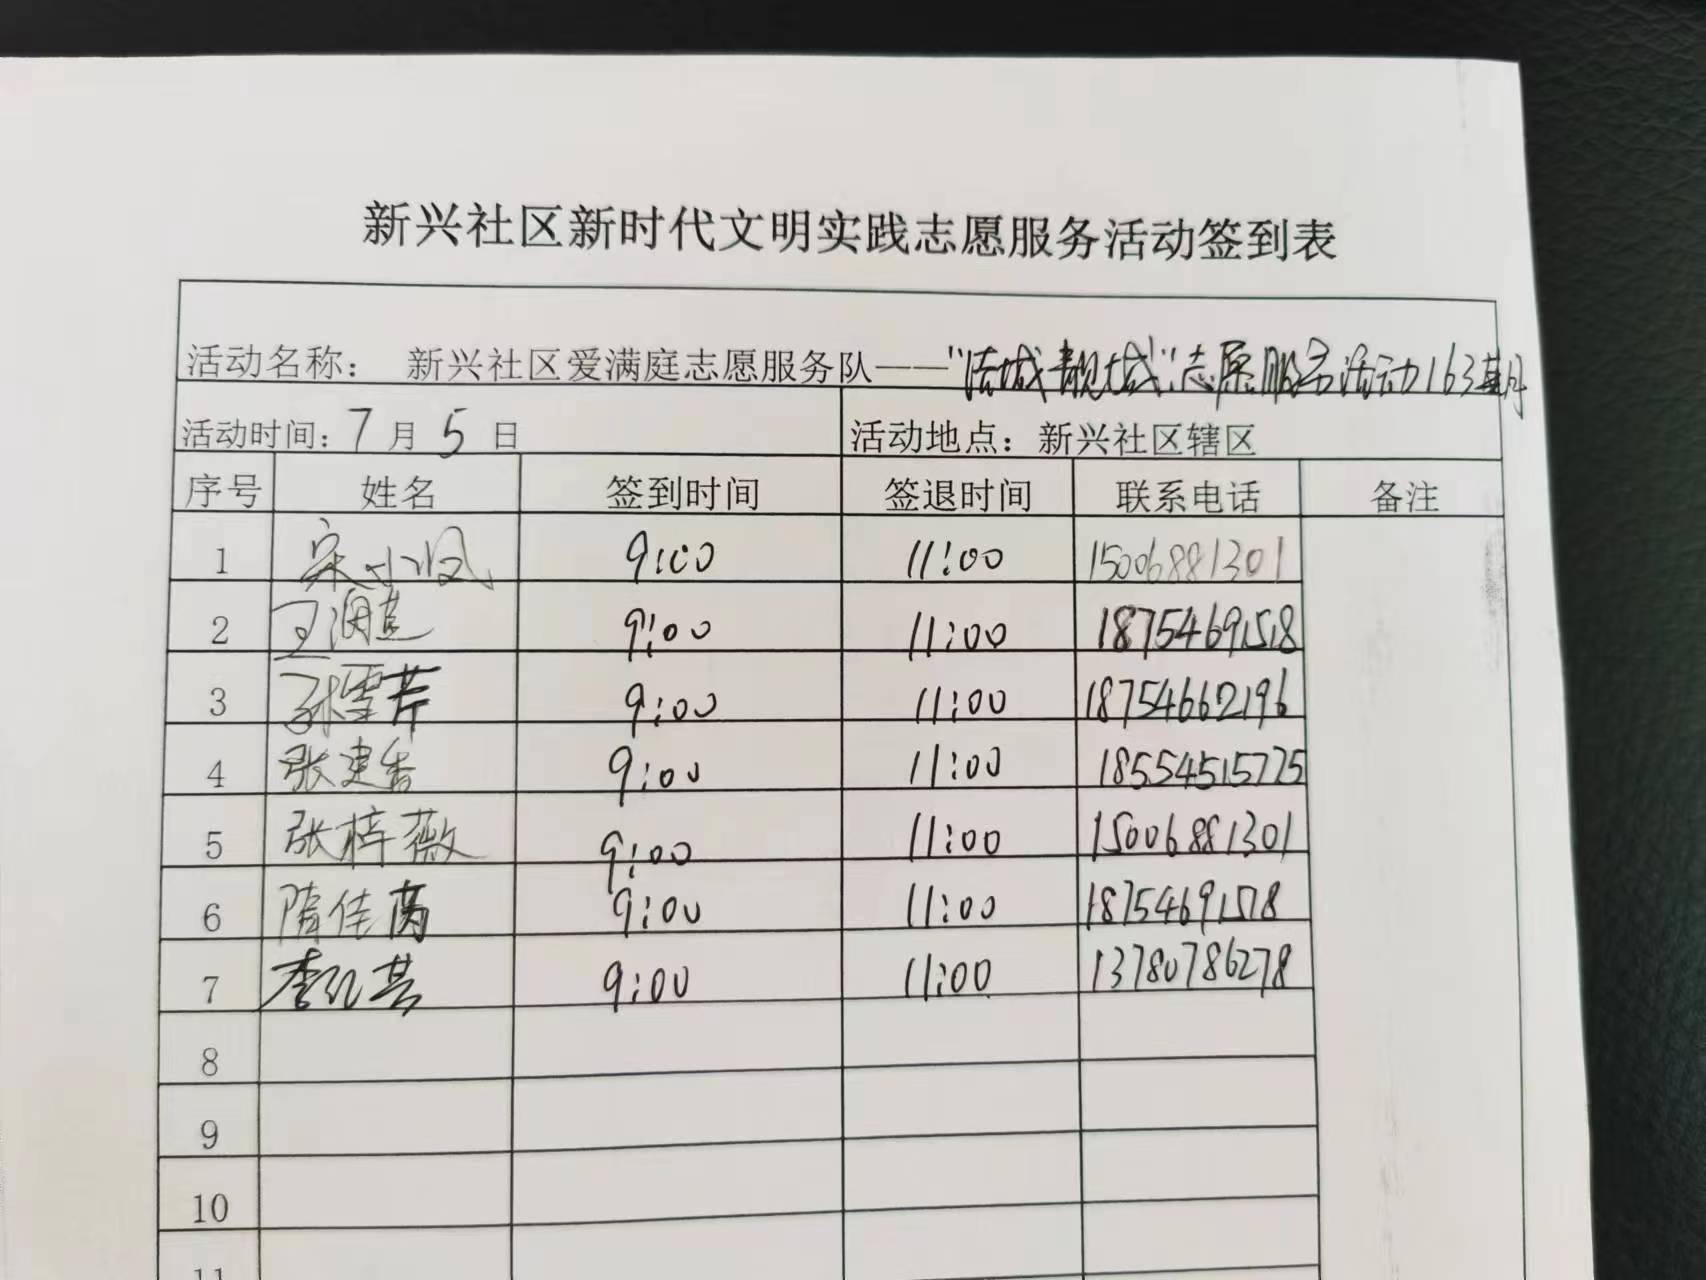 新兴社区新时代文明实践志愿服务活动签到表
活动名称： 新兴社区爱满庭志愿服务队——“洁城靓城”志愿服务活动163期
活动时间：7月5日 活动地点：新兴社区辖区
序号 姓名 签到时间 签退时间 联系电话 备注
1 宋小凤 9:00 11:00 15006881301
2 王润莲 9:00 11:00 18754691518
3 孙雪芹 9:00 11:00 18754662196
4 张建 9:00 11:00 18554515775
5 张梓薇 9:00 11:00 15006881301
6 隋佳茵 9:00 11:00 18754691578
7 李红芸 9:00 11:00 13780786278
8
9
10
11